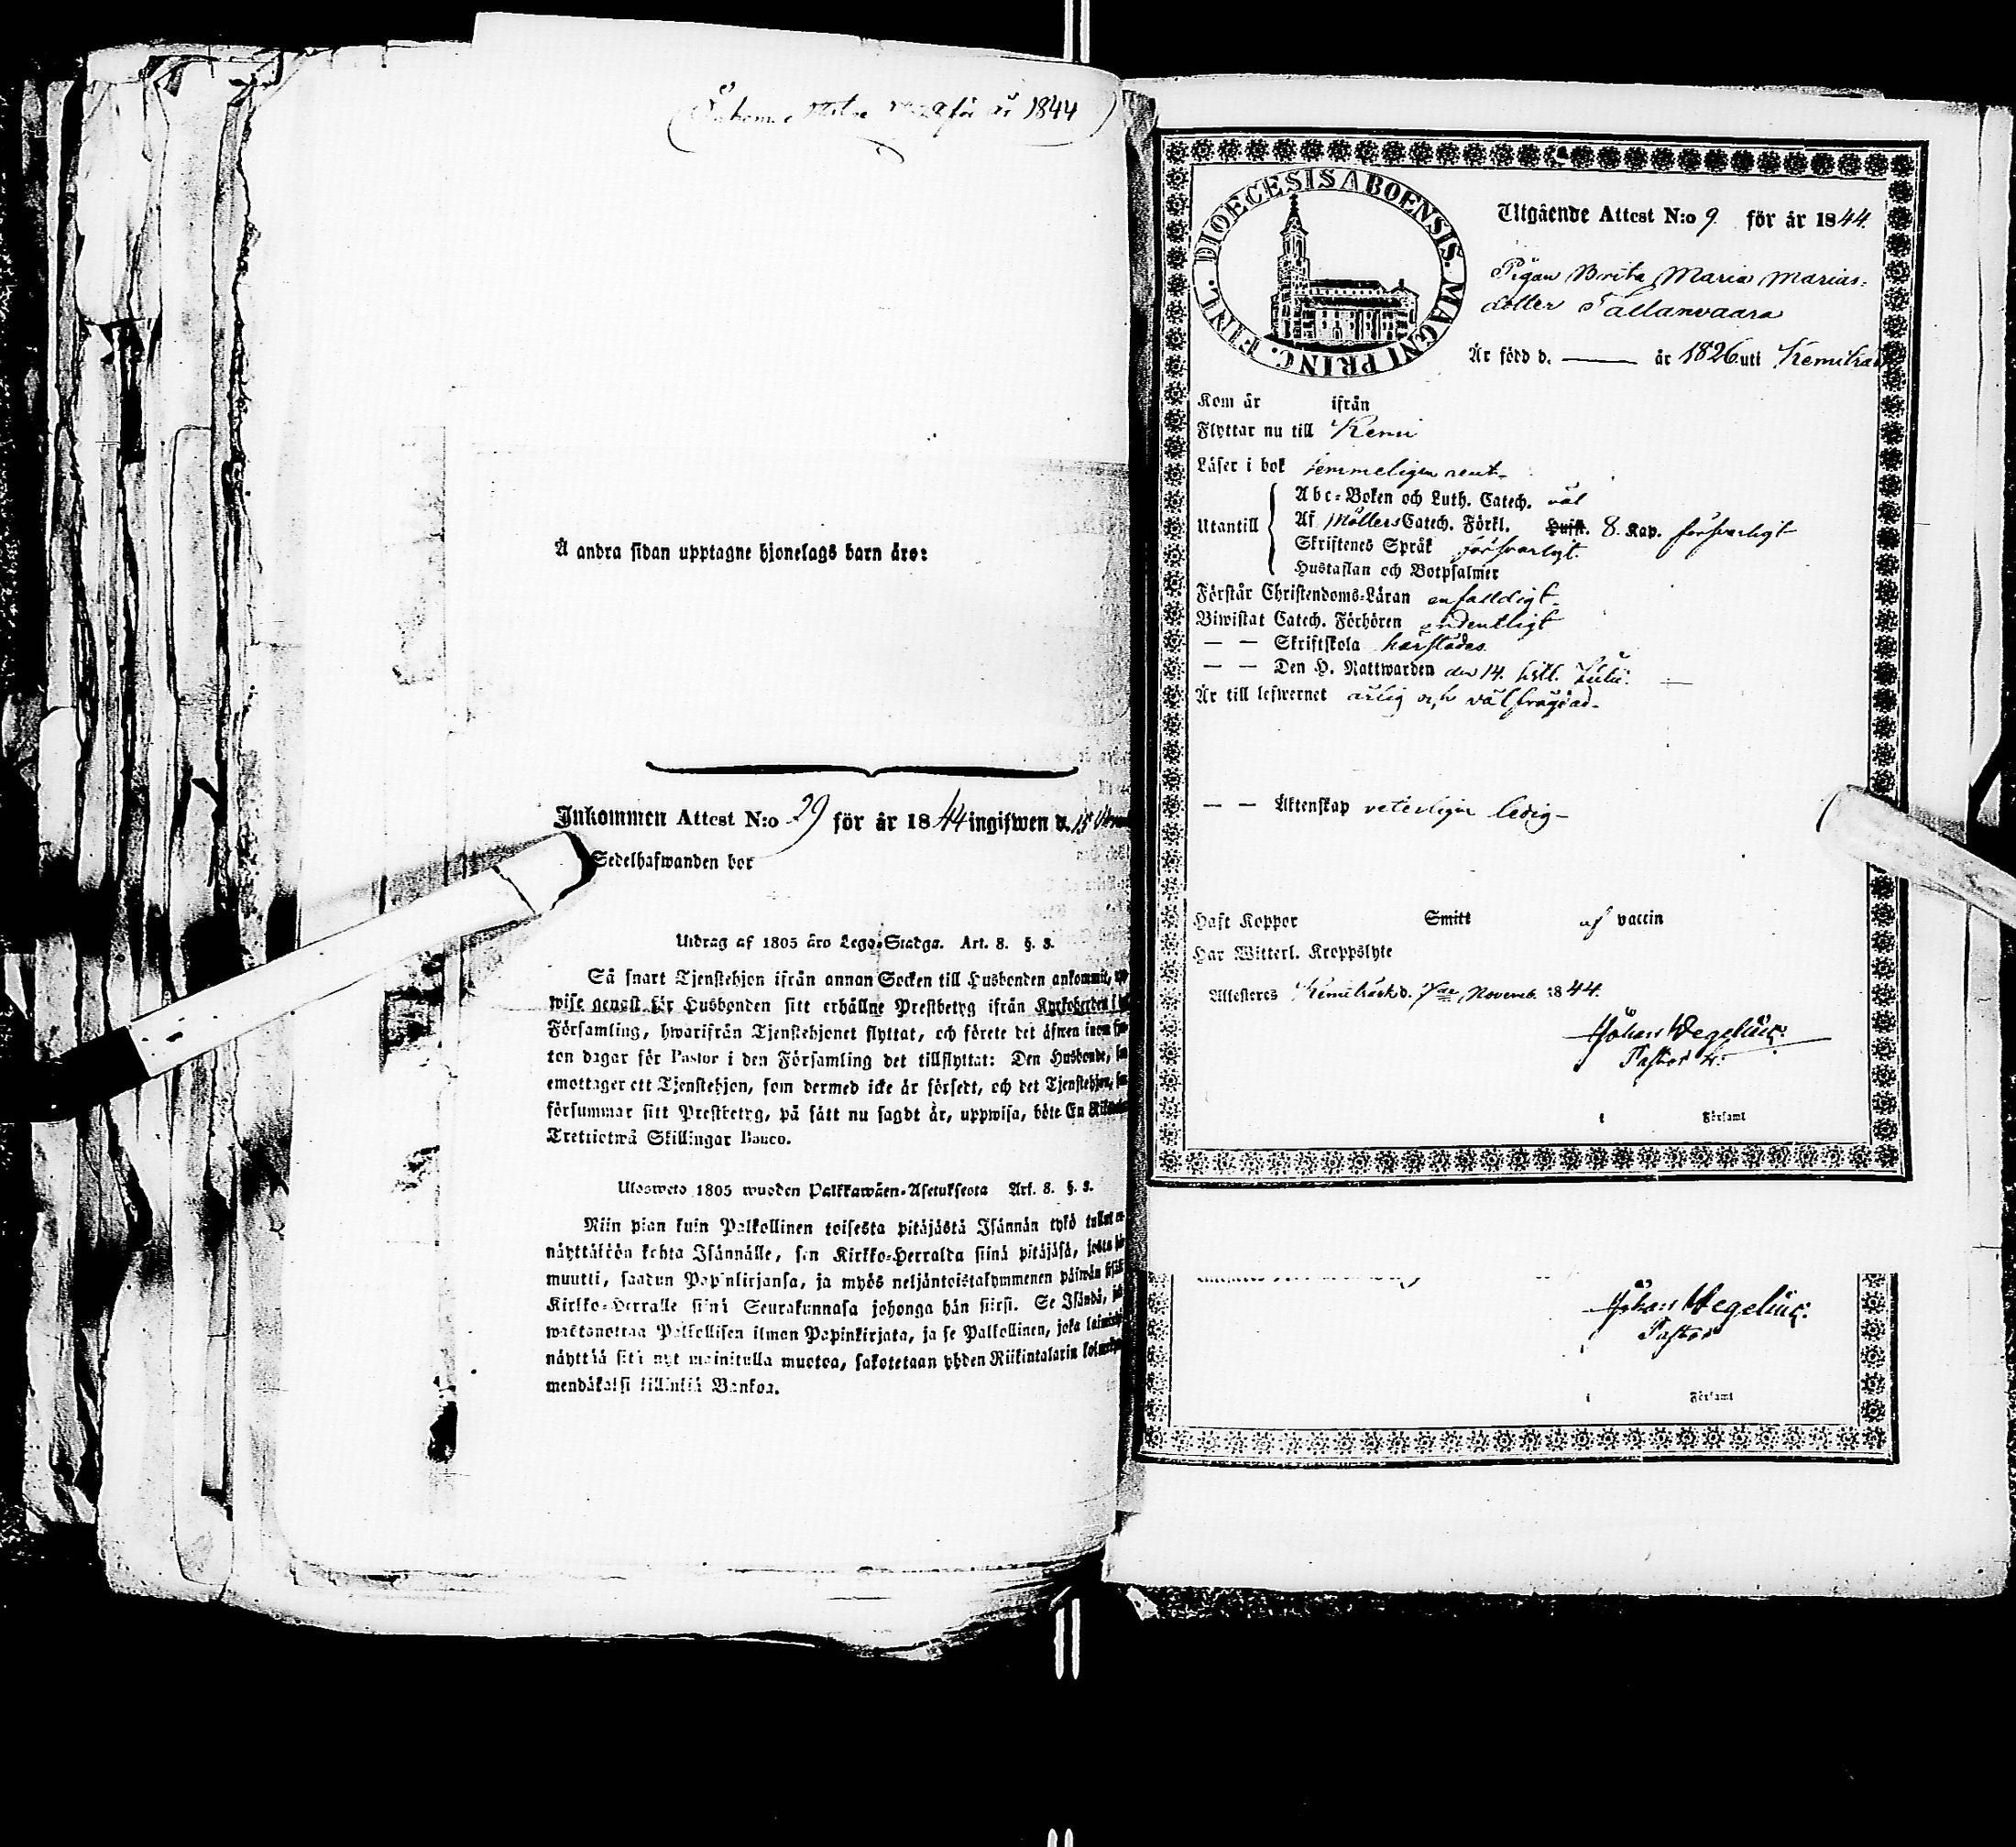 för år 1844
Å andra sidan upptagne hjonelags barn äro:
Inkommen Attest N:o 29 för år 1844 ingifwen d. 15
Sedelhafwanden bor
Utdrag af 1805 års Lego-Stadga. Art. 8. §. 3.
Så snart Tjenstehjon ifrån annan Socken till Husbonden ankommit,
wise genast för Husbonden sitt erhållne Prestbetyg ifrån Kyrkoherden i
Församling, hwarifrån Tjenstehjonet flyttat, och förete det äfwen inom
ton dagar för Pastor i den Församling det tillflyttat: Den Husbonde,
emottager ett Tjenstehjon, som dermed icke är försedt, och det Tjenstehjon,
försummar sitt Prestbetyg, på sätt nu sagdt är, uppwisa, böte En
Trettiotwå Skillingar Banco.
Ulosweto 1805 wuoden Palkkawäen-Asetuksesta Art. 8. §. 3.
Niin pian kuin Palkollinen toisesta pitäjästä Isännän tykö tullut
näyttäköön kohta Isännälle, sen Kirkko-Herralda siinä pitäjäsä, josta
muutti, saadun Papinkirjansa, ja myös neljäntoistakymmenen päiwän
Kirkko-Herralle siinä Seurakunnasa johonga hän siirsi. Se Isändä,
wastanottaa Palkollisen ilman Papinkirjata, ja se Palkollinen, joka
näyttää sitä nyt mainitulla muotoa, sakotetaan yhden Riikintalarin
mendäkaksi killinkiä Bankoa.
DIOECESIS ABOENSIS. MAGNI PRINC. FINL.
Utgående Attest N:o 9 för år 1844.
Pigan Brita Maria Marias-
dotter Tallanvaara
Är född d. — år 1826 uti Kemiträsk
Kom år ifrån
Flyttar nu till Kemi
Läser i bok temmeligen rent
Abc-Boken och Luth. Catech. väl
Utantill Af Möllers Catech. Förkl. Husft. 8. Kap. försvarligt
Skriftenes Språk försvarligt
Hustaflan och Botpsalmer
Förstår Christendoms-Läran enfaldigt
Biwistat Catech. Förhören ordentligt
— — Skriftskola härstädes
— — Den H. Nattwarden den 14. sistl. Julii.
Är till lefwernet ärlig och välfrägdad
— — Äktenskap veterligen ledig
Haft Koppor Smitt af vaccin
Har Witterl. Kroppslyte
Attesteras Kemiträsk d. 7de Novemb. 1844.
Johan Wegelius.
Pastor
i Församl
Johan Wegelius.
Pastor
i Församl